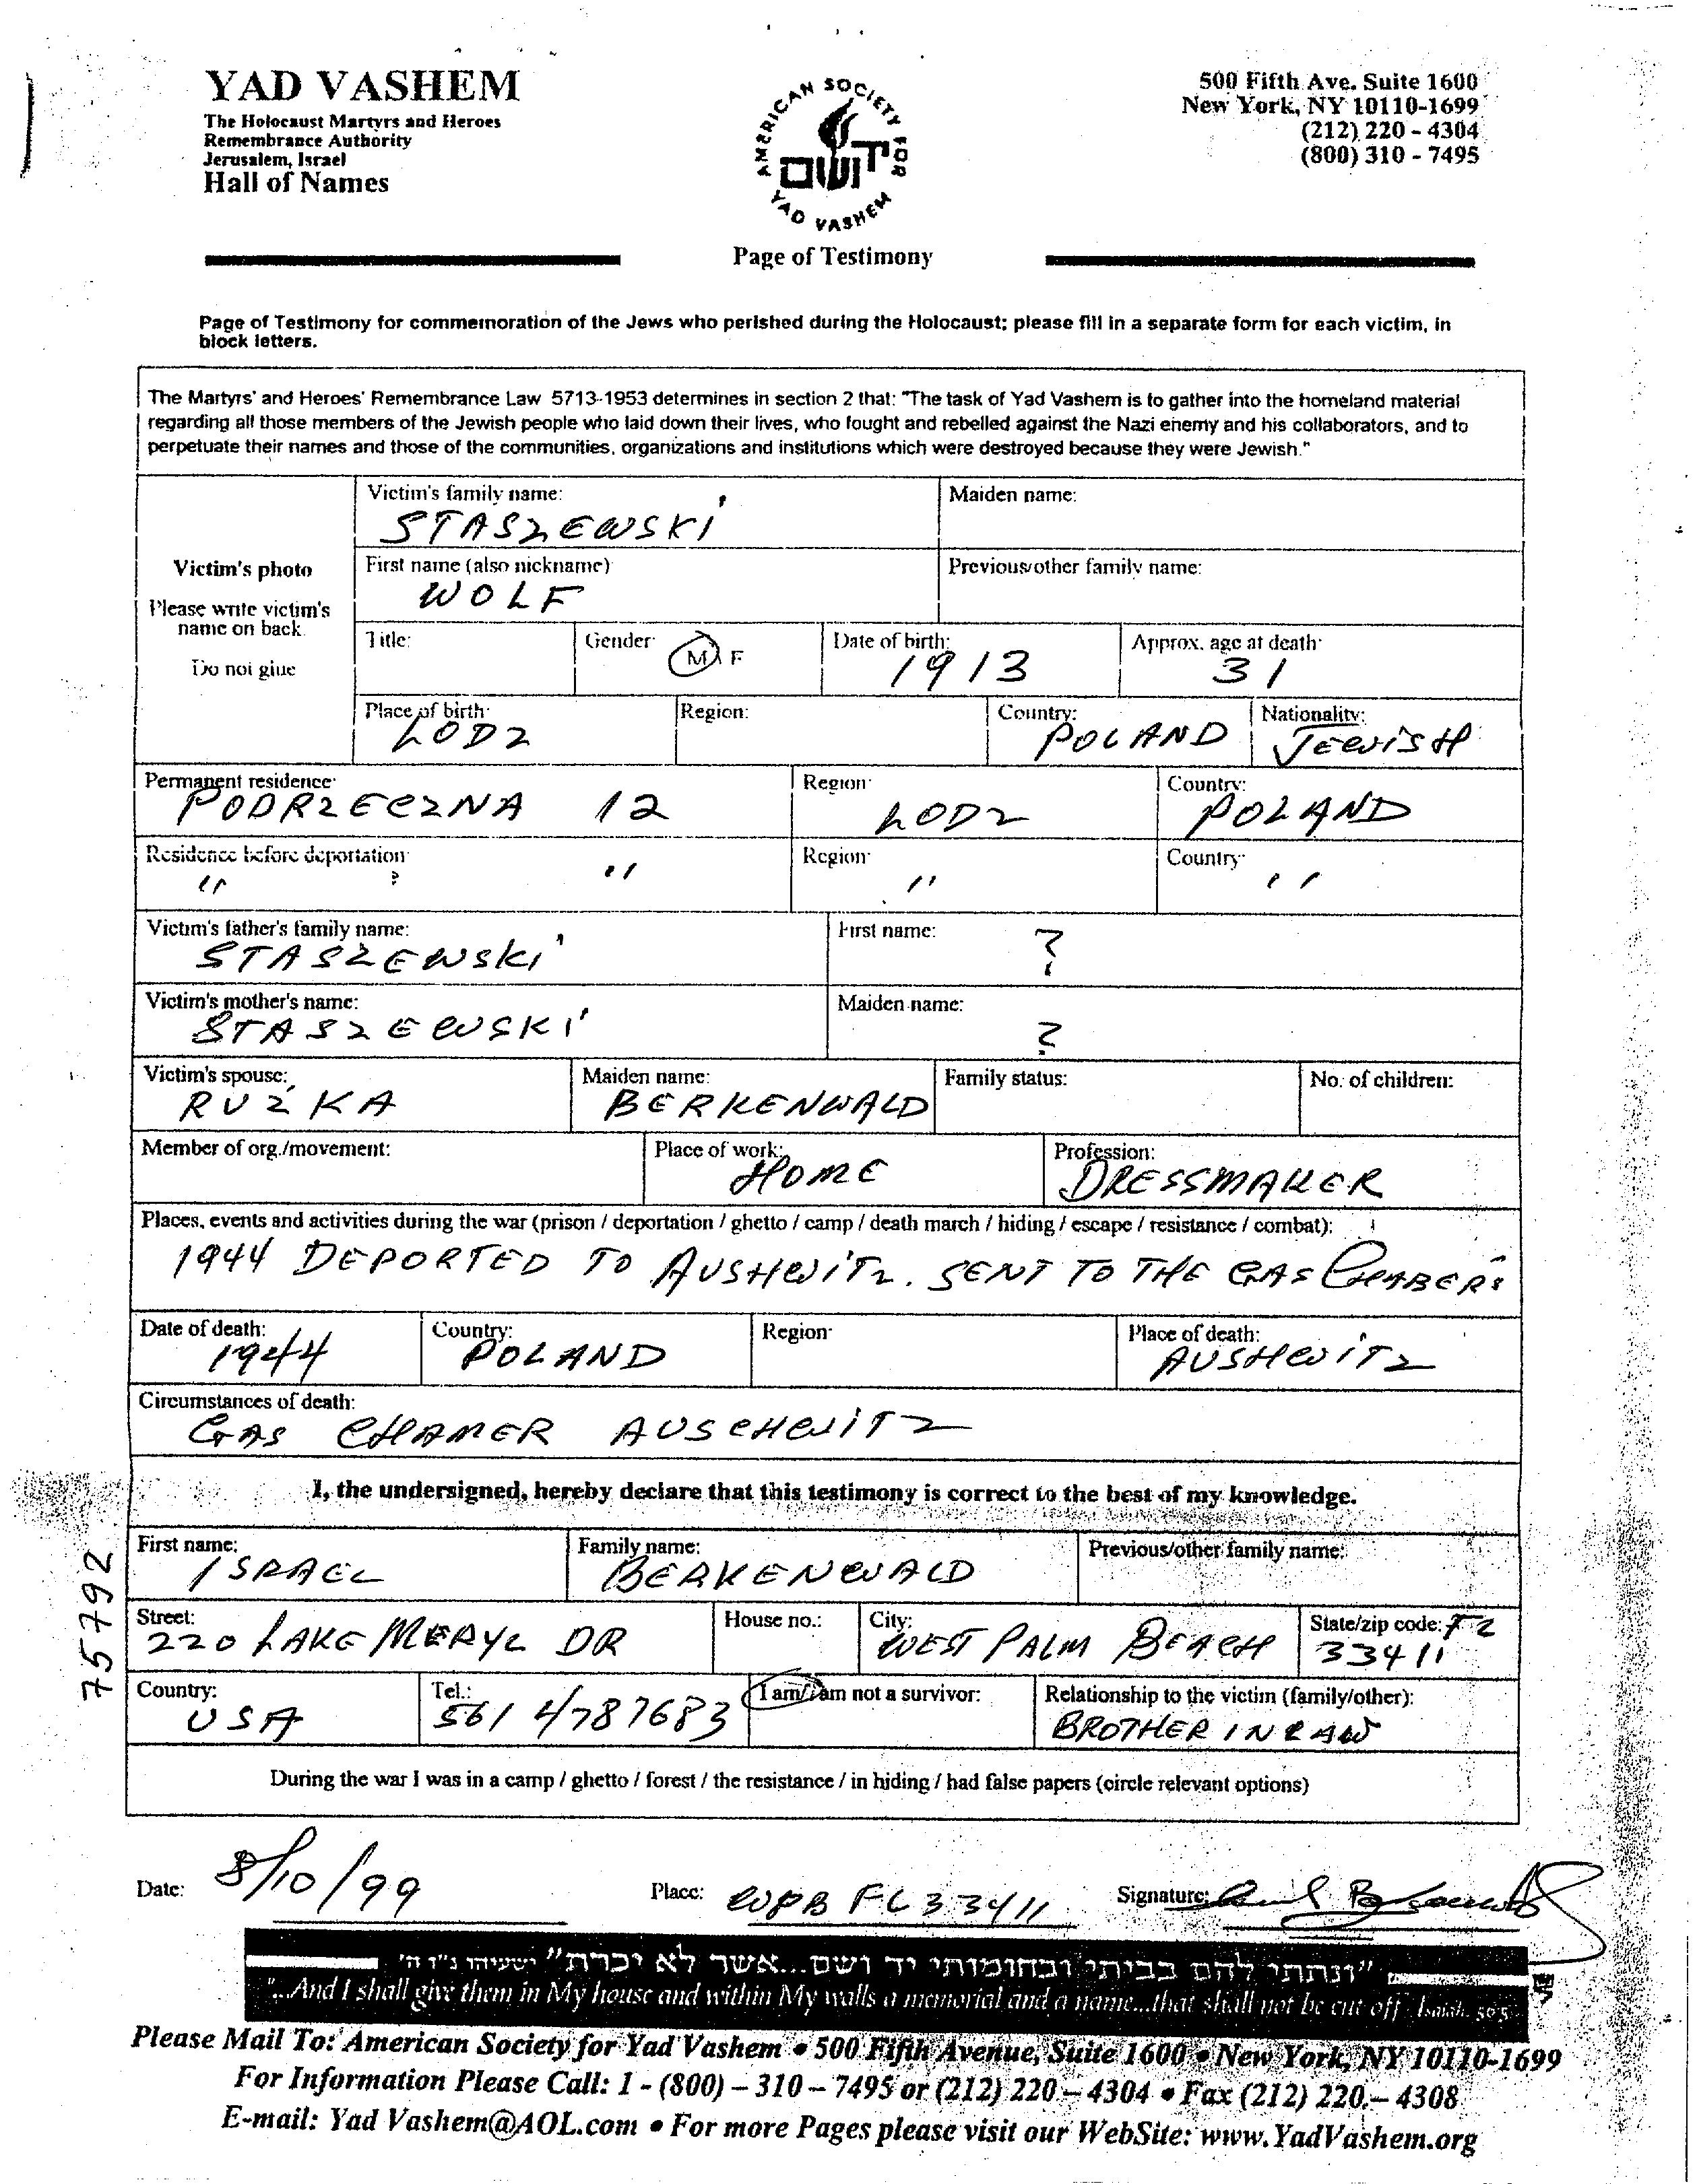 YAD VASHEM
The Holocaust Martyrs and Heroes
Remembrance Authority
Jerusalem, Israel
Hall of Names
AMERICAN SOCIETY FOR
יד ושם
YAD VASHEM
500 Fifth Ave. Suite 1600
New York, NY 10110-1699
(212) 220 - 4304
(800) 310 - 7495
Page of Testimony
Page of Testimony for commemoration of the Jews who perished during the Holocaust; please fill in a separate form for each victim, in
block letters.
The Martyrs' and Heroes' Remembrance Law 5713-1953 determines in section 2 that: "The task of Yad Vashem is to gather into the homeland material
regarding all those members of the Jewish people who laid down their lives, who fought and rebelled against the Nazi enemy and his collaborators, and to
perpetuate their names and those of the communities, organizations and institutions which were destroyed because they were Jewish."
Victim's photo
Please write victim's
name on back
Do not glue
Victim's family name: Maiden name:
STASZEWSKI
First name (also nickname) Previous/other family name:
WOLF
Title: Gender M F Date of birth: Approx. age at death:
1913 31
Place of birth: Region: Country: Nationality:
LODZ POLAND JEWISH
Permanent residence: Region: Country:
PODRZECZNA 12 LODZ POLAND
Residence before deportation: Region: Country:
" " " "
Victim's father's family name: First name:
STASZEWSKI ?
Victim's mother's name: Maiden name:
STASZEWSKI ?
Victim's spouse: Maiden name: Family status: No. of children:
RUZKA BERKENWALD
Member of org./movement: Place of work: Profession:
HOME DRESSMAKER
Places, events and activities during the war (prison / deportation / ghetto / camp / death march / hiding / escape / resistance / combat):
1944 DEPORTED TO AUSHWITZ. SENT TO THE GAS
Date of death: Country: Region: Place of death:
1944 POLAND AUSHWITZ
Circumstances of death:
GAS CHAMER AUSCHWITZ
I, the undersigned, hereby declare that this testimony is correct to the best of my knowledge.
First name: Family name: Previous/other family name:
ISRAEL BERKENWALD
Street: House no.: City: State/zip code: FL
220 LAKE MERYL DR WEST PALM BEACH 33411
Country: Tel.: I am/I am not a survivor: Relationship to the victim (family/other):
USA 561 4787683 BROTHER IN LAW
During the war I was in a camp / ghetto / forest / the resistance / in hiding / had false papers (circle relevant options)
75792
Date: 8/10/99 Place: WPB FL 33411 Signature:
"ונתתי להם בביתי ובחומותי יד ושם...אשר לא יכרת" ישעיהו נ"ו ה'
"...And I shall give them in My house and within My walls a memorial and a name...that shall not be cut off" Isaiah. 56:5
Please Mail To: American Society for Yad Vashem • 500 Fifth Avenue, Suite 1600 • New York, NY 10110-1699
For Information Please Call: 1 - (800) – 310 – 7495 or (212) 220 – 4304 • Fax (212) 220 – 4308
E-mail: Yad Vashem@AOL.com • For more Pages please visit our WebSite: www.YadVashem.org